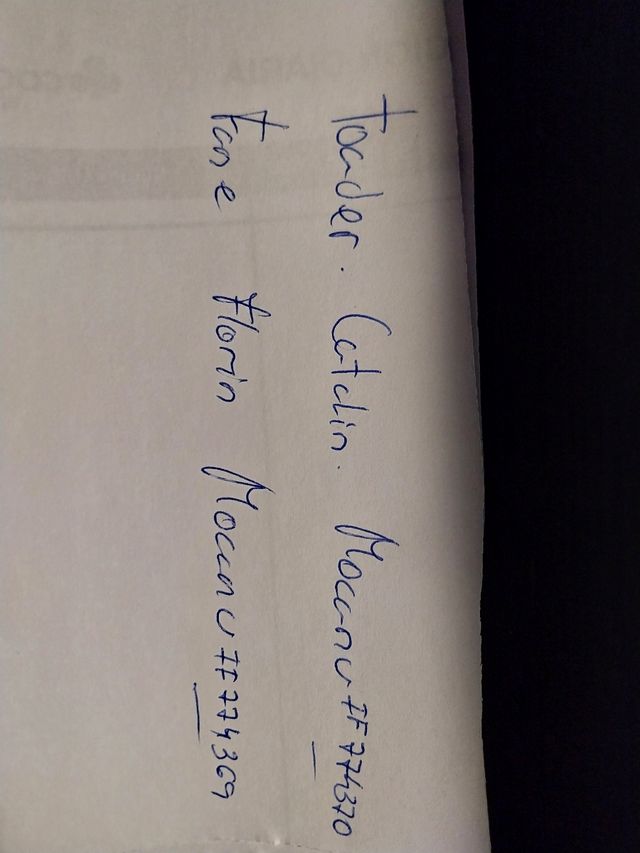 Toader. Catalin. Mocanu IF774370
Fane Florin Mocanu IF774369